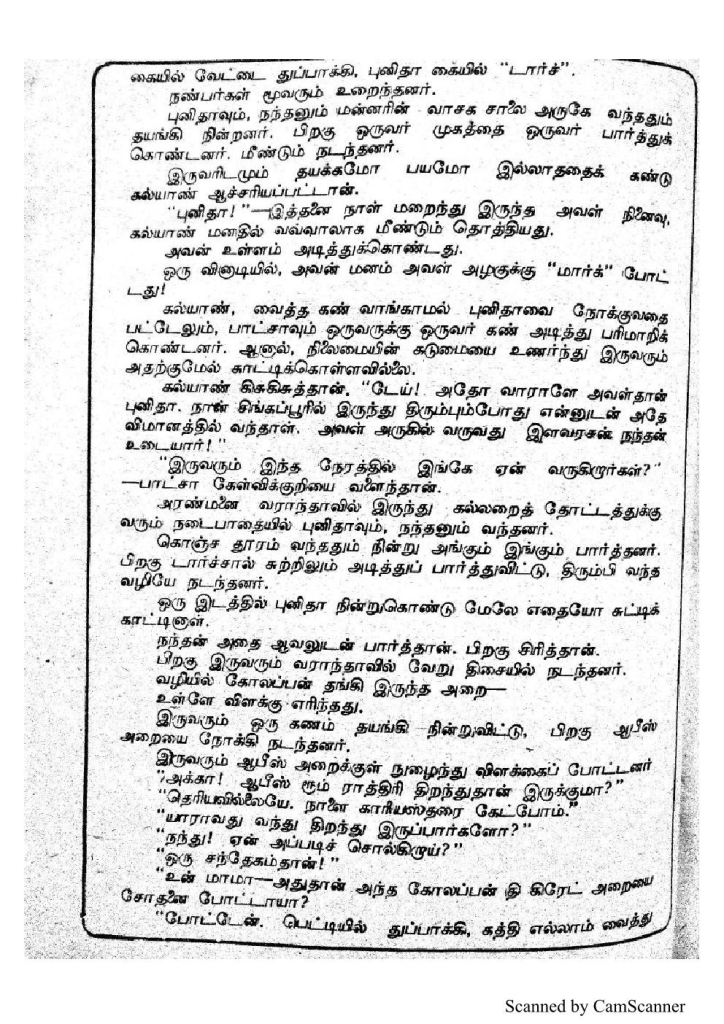 கையில் வேட்டை துப்பாக்கி, புனிதா கையில் "டார்ச்".
நண்பர்கள் மூவரும் உறைந்தனர்.
புனிதாவும், நந்தனும் மன்னரின் வாசக சாலை அருகே வந்ததும்
தயங்கி நின்றனர். பிறகு ஒருவர் முகத்தை ஒருவர் பார்த்துக்
கொண்டனர். மீண்டும் நடந்தனர்.
இருவரிடமும் தயக்கமோ பயமோ இல்லாததைக் கண்டு
கல்யாண் ஆச்சரியப்பட்டான்.
"புனிதா!"—இத்தனை நாள் மறைந்து இருந்த அவள் நினைவு,
கல்யாண் மனதில் வவ்வாலாக மீண்டும் தொத்தியது.
அவன் உள்ளம் அடித்துக்கொண்டது.
ஒரு வினாடியில், அவன் மனம் அவள் அழகுக்கு "மார்க்" போட்
டது!
கல்யாண், வைத்த கண் வாங்காமல் புனிதாவை நோக்குவதை
பட்டேலும், பாட்சாவும் ஒருவருக்கு ஒருவர் கண் அடித்து பரிமாறிக்
கொண்டனர். ஆனால், நிலைமையின் கடுமையை உணர்ந்து இருவரும்
அதற்குமேல் காட்டிக்கொள்ளவில்லை.
கல்யாண் கிசுகிசுத்தான். "டேய்! அதோ வாராளே அவள்தான்
புனிதா. நான் சிங்கப்பூரில் இருந்து திரும்பும்போது என்னுடன் அதே
விமானத்தில் வந்தாள். அவள் அருகில் வருவது இளவரசன் நந்தன்
உடையார்!"
"இருவரும் இந்த நேரத்தில் இங்கே ஏன் வருகிறார்கள்?"
—பாட்சா கேள்விக்குறியை வளைந்தான்.
அரண்மனை வராந்தாவில் இருந்து கல்லறைத் தோட்டத்துக்கு
வரும் நடைபாதையில் புனிதாவும், நந்தனும் வந்தனர்.
கொஞ்ச தூரம் வந்ததும் நின்று அங்கும் இங்கும் பார்த்தனர்.
பிறகு டார்ச்சால் சுற்றிலும் அடித்துப் பார்த்துவிட்டு, திரும்பி வந்த
வழியே நடந்தனர்.
ஒரு இடத்தில் புனிதா நின்றுகொண்டு மேலே எதையோ சுட்டிக்
காட்டினாள்.
நந்தன் அதை ஆவலுடன் பார்த்தான். பிறகு சிரித்தான்.
பிறகு இருவரும் வராந்தாவில் வேறு திசையில் நடந்தனர்.
வழியில் கோலப்பன் தங்கி இருந்த அறை—
உள்ளே விளக்கு எரிந்தது.
இருவரும் ஒரு கணம் தயங்கி நின்றுவிட்டு, பிறகு ஆபீஸ்
அறையை நோக்கி நடந்தனர்.
இருவரும் ஆபீஸ் அறைக்குள் நுழைந்து விளக்கைப் போட்டனர்
"அக்கா! ஆபீஸ் ரூம் ராத்திரி திறந்துதான் இருக்குமா?"
"தெரியவில்லையே. நாளை காரியஸ்தரை கேட்போம்."
"யாராவது வந்து திறந்து இருப்பார்களோ?"
"நந்து! ஏன் அப்படிச் சொல்கிறாய்?"
"ஒரு சந்தேகம்தான்!"
"உன் மாமா—அதுதான் அந்த கோலப்பன் தி கிரேட் அறையை
சோதனை போட்டாயா?
"போட்டேன். பெட்டியில் துப்பார்க்கி, கத்தி எல்லாம் வைத்து
Scanned by CamScanner